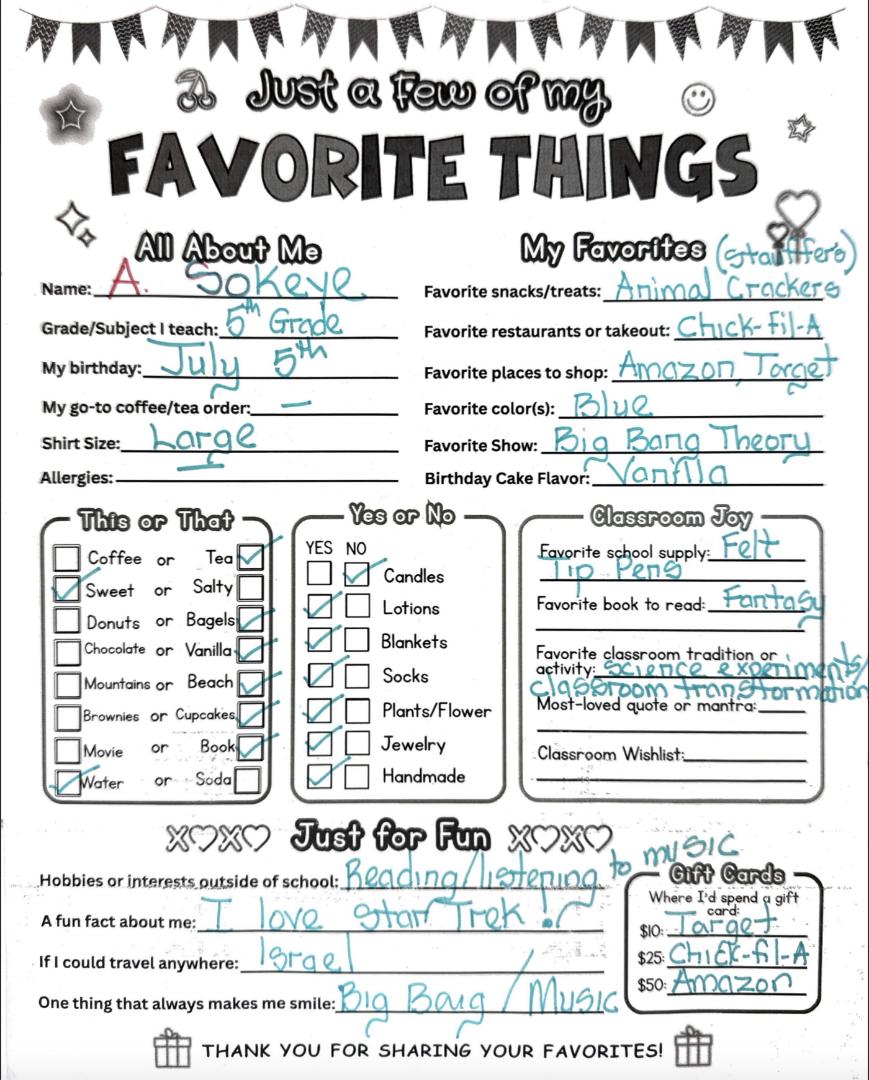 Just a Few of my
FAVORITE THINGS
All About Me
Name: A. Sokeye
Grade/Subject I teach: 5th Grade
My birthday: July 5th
My go-to coffee/tea order: —
Shirt Size: Large
Allergies: —
My Favorites (Stauffer's)
Favorite snacks/treats: Animal Crackers
Favorite restaurants or takeout: Chick-fil-A
Favorite places to shop: Amazon, Target
Favorite color(s): Blue
Favorite Show: Big Bang Theory
Birthday Cake Flavor: Vanilla
This or That
Coffee or Tea
Sweet or Salty
Donuts or Bagels
Chocolate or Vanilla
Mountains or Beach
Brownies or Cupcakes
Movie or Book
Water or Soda
Yes or No
YES NO
Candles
Lotions
Blankets
Socks
Plants/Flower
Jewelry
Handmade
Classroom Joy
Favorite school supply: Felt
Tip Pens
Favorite book to read: Fantasy
Favorite classroom tradition or
activity: science experiments/
classroom transformation
Most-loved quote or mantra:
Classroom Wishlist:
XOXO Just for Fun XOXO
Hobbies or interests outside of school: Reading/listening to music
A fun fact about me: I love Star Trek!
If I could travel anywhere: Israel
One thing that always makes me smile: Big Bang / Music
Gift Cards
Where I'd spend a gift
card:
$10: Target
$25: Chick-fil-A
$50: Amazon
THANK YOU FOR SHARING YOUR FAVORITES!